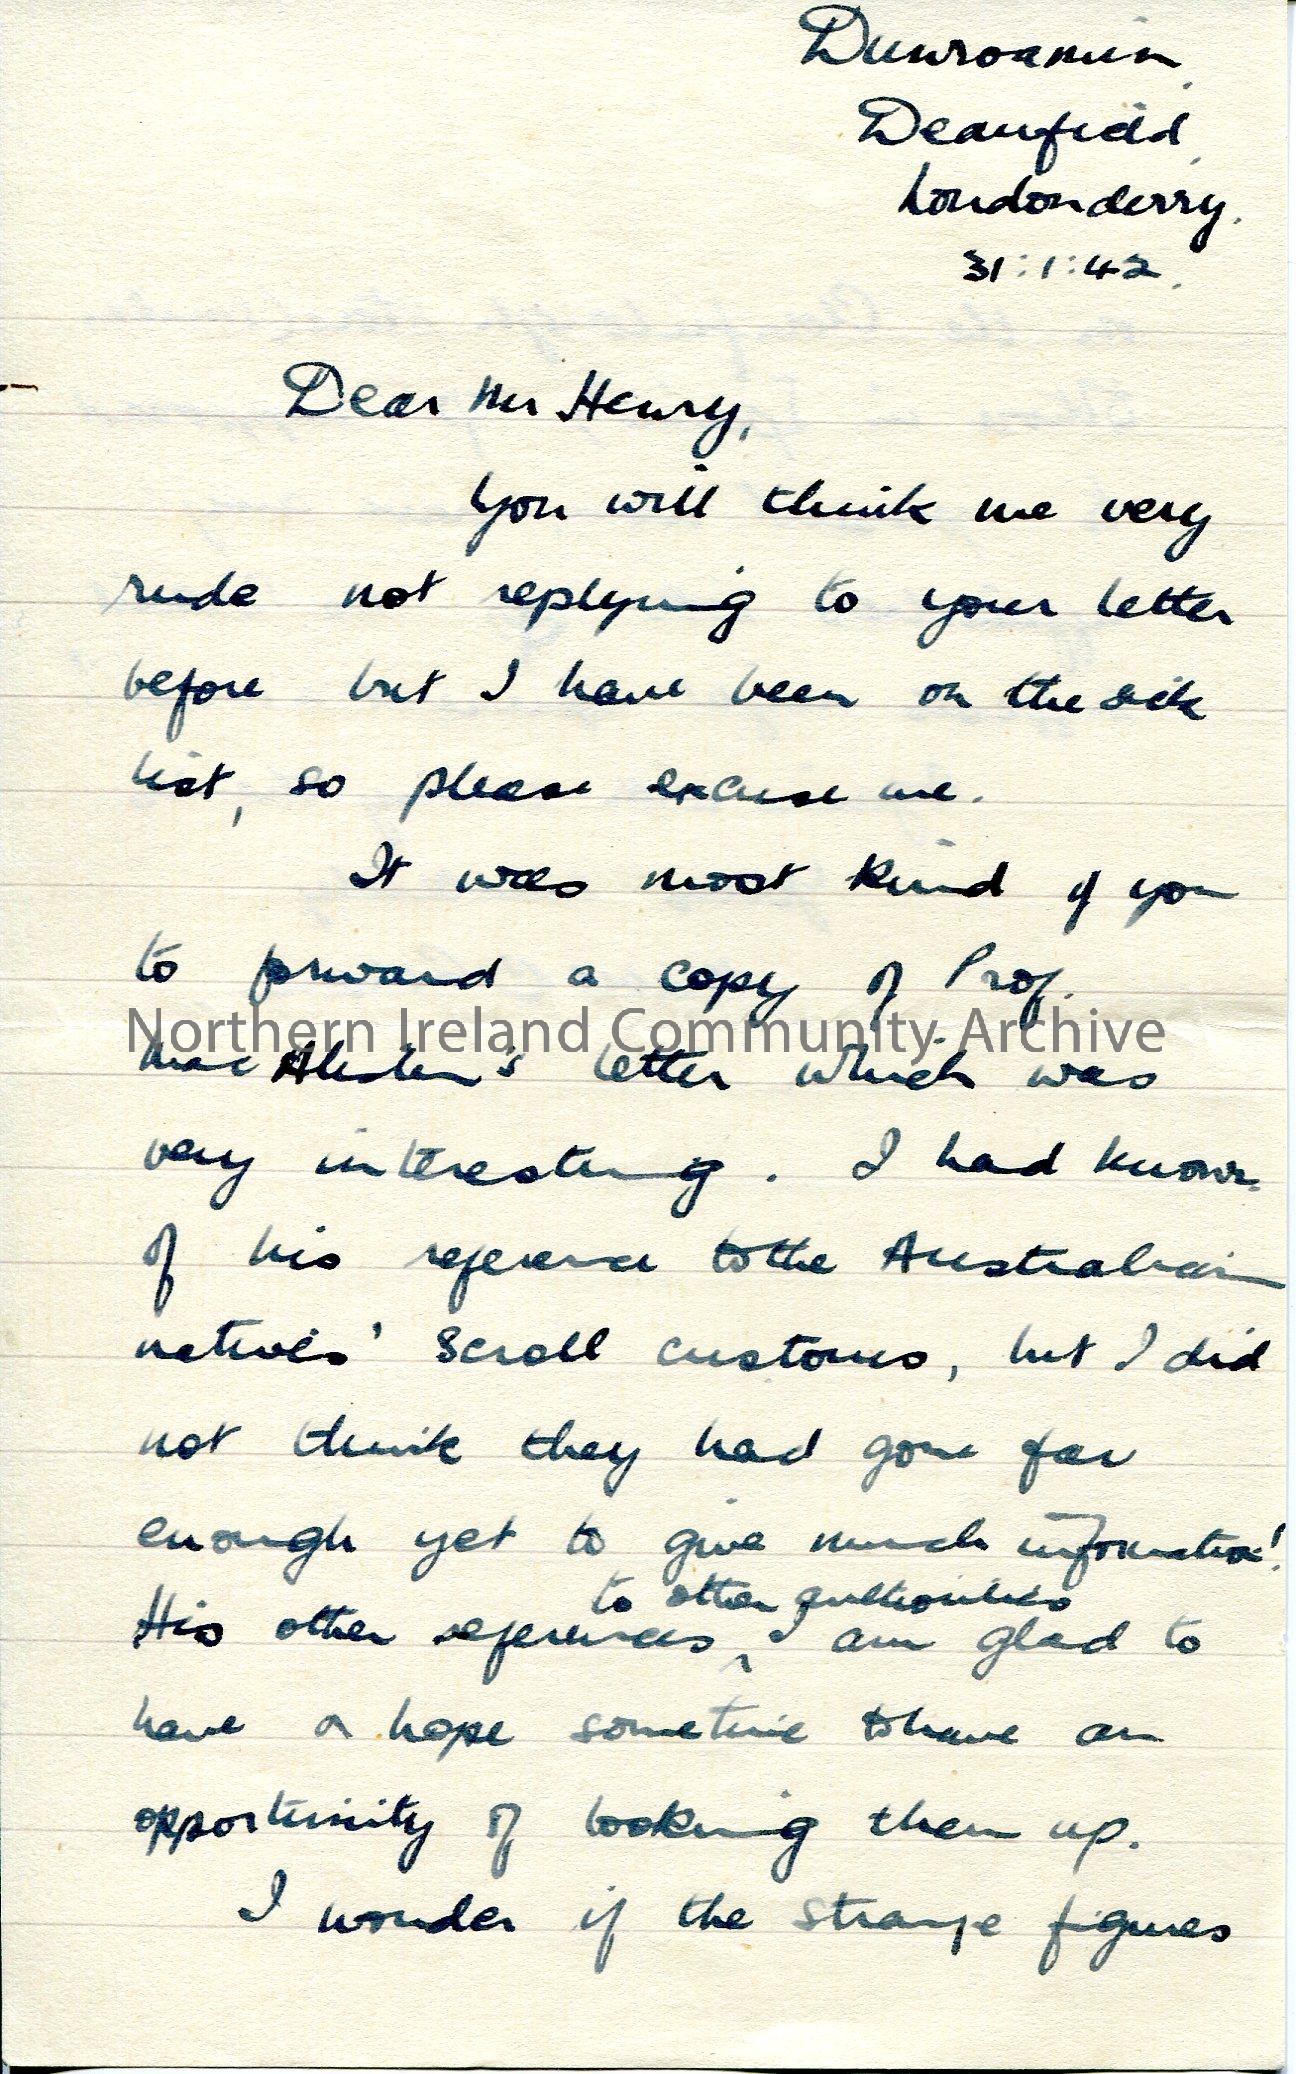 Dunroamin,
Deanfield,
Londonderry.
31:1:42.
Dear Mr Henry,
You will think me very
rude not replying to your letter
before but I have been on the sick
list, so please excuse me.
It was most kind of you
to forward a copy of Prof.
Northern Ireland Community Archive
MacAlister's letter which was
very interesting. I had known
of his reference to the Australian
natives' scroll customs, but I did
not think they had gone far
enough yet to give much information!
to other authorities
His other references ^ I am glad to
have a hope sometime to have an
opportunity of looking them up.
I wonder if the strange figures